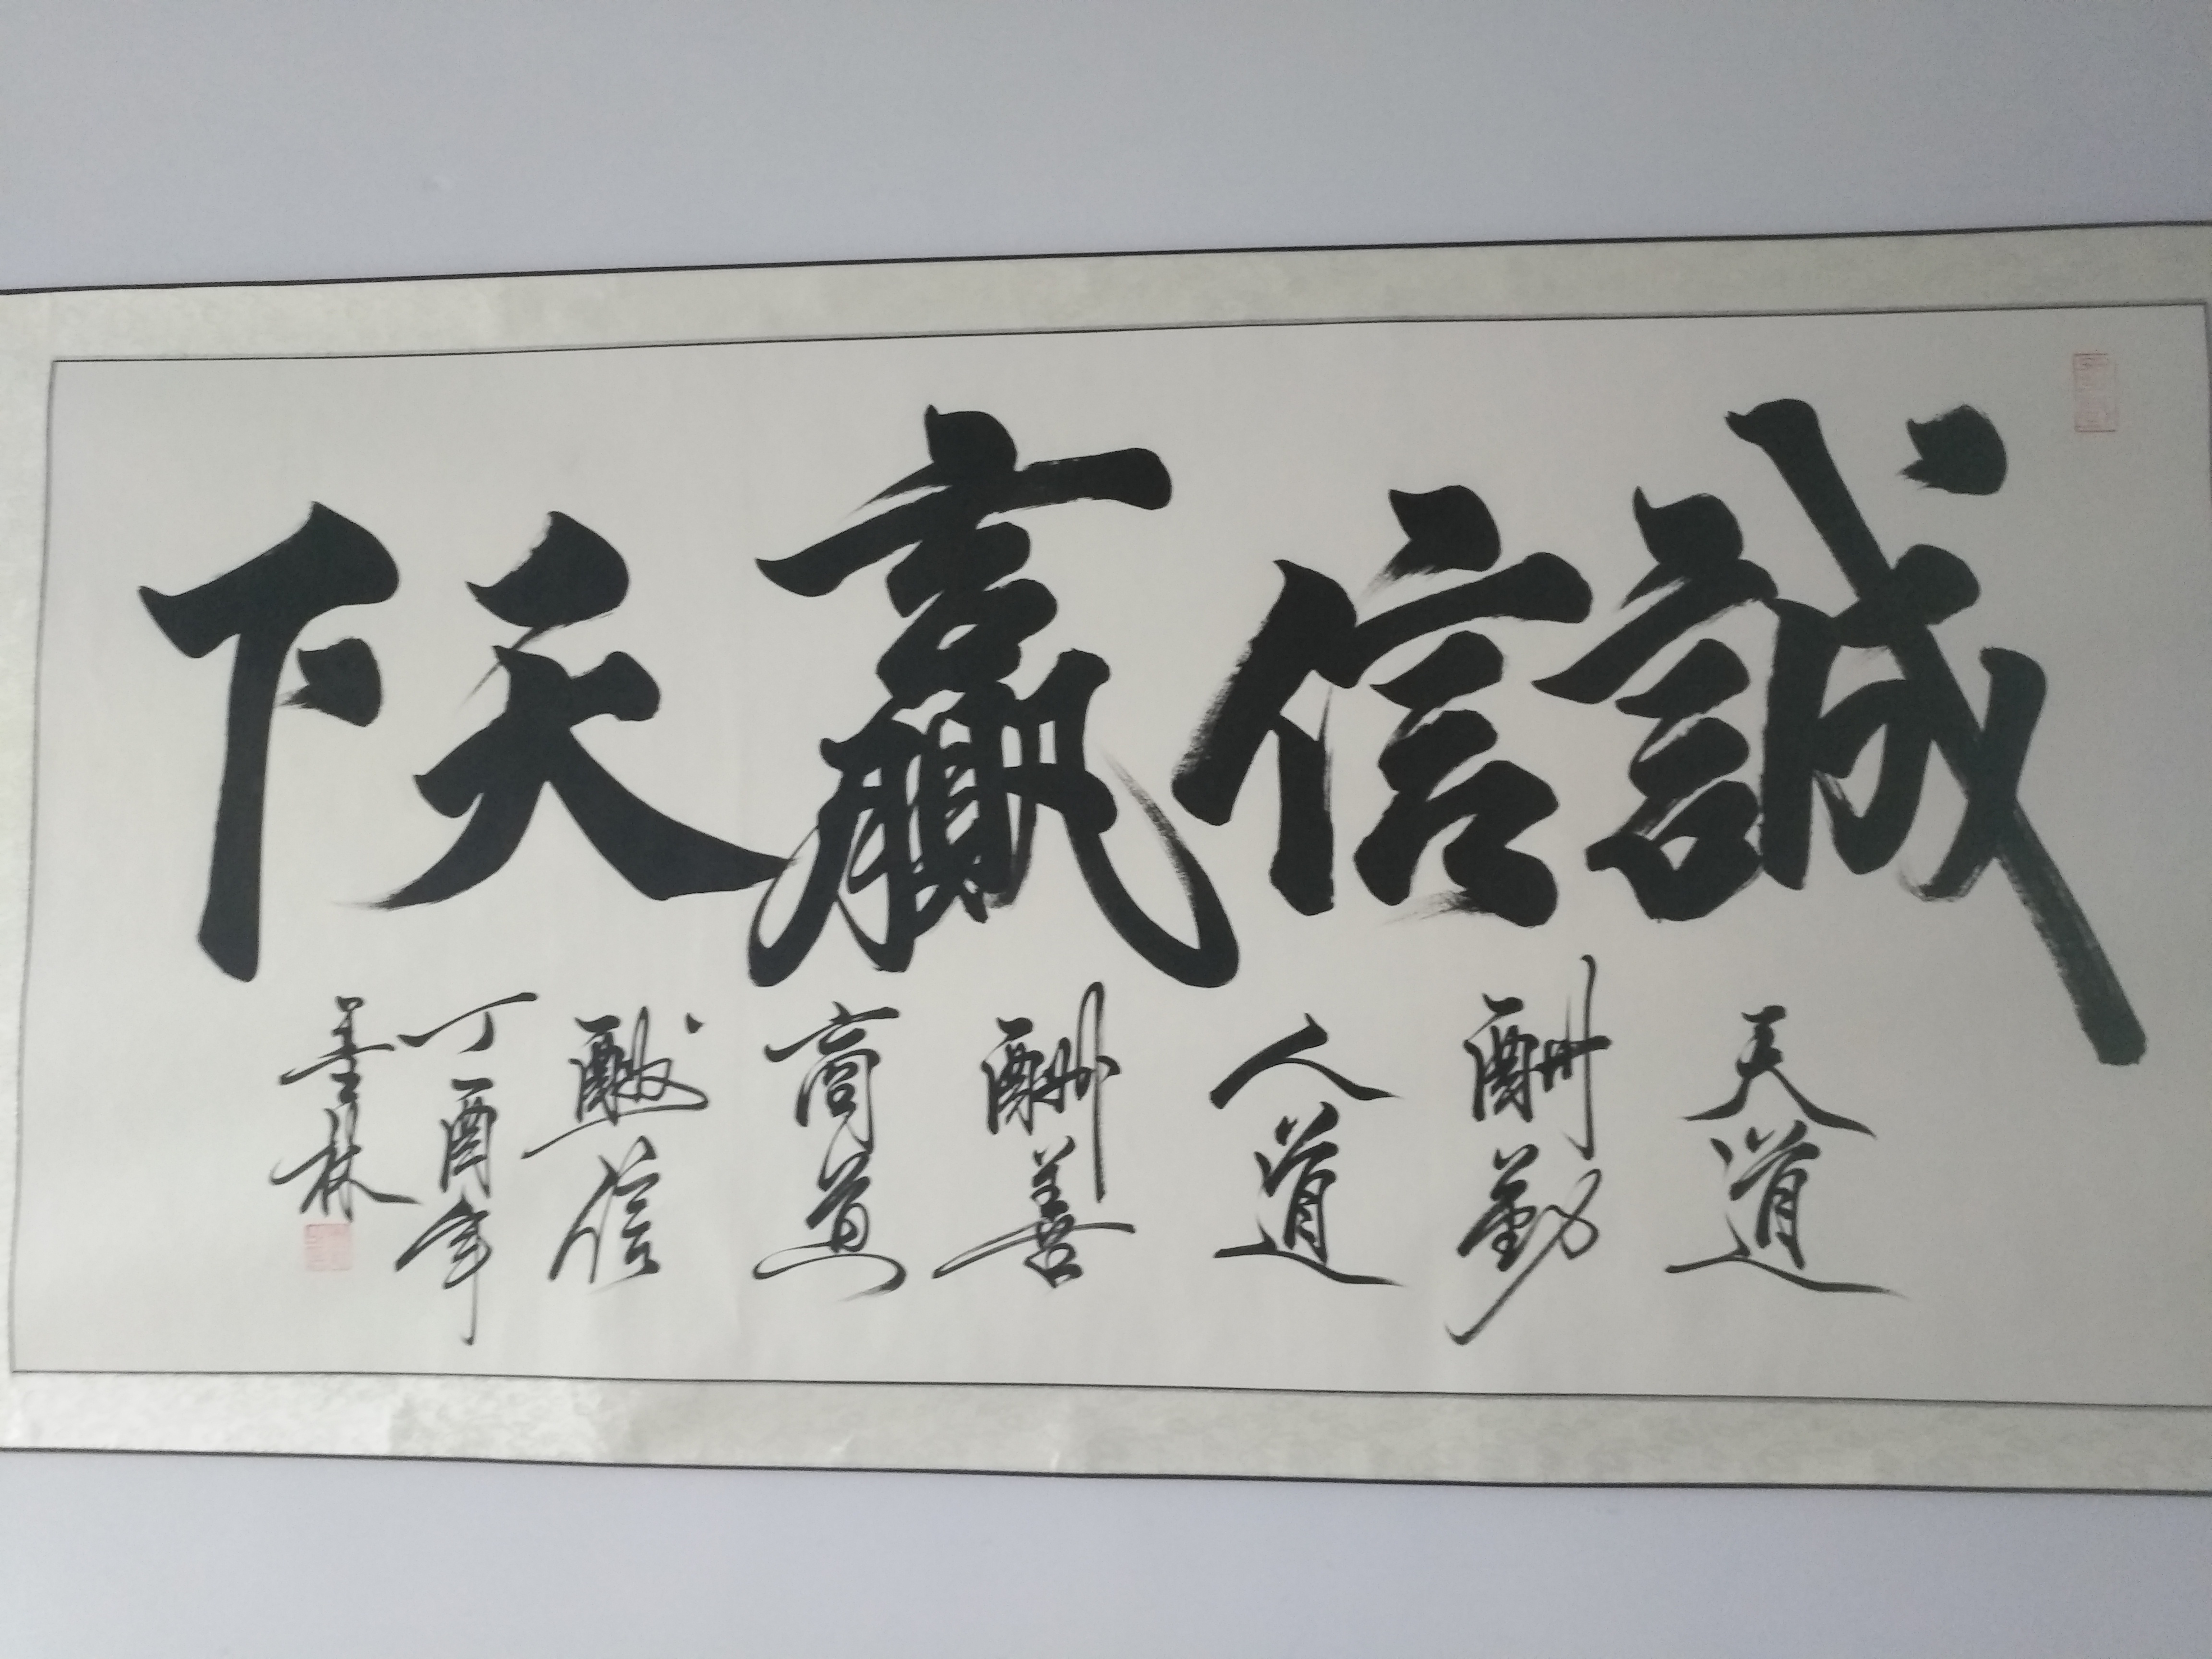 誠信贏天下
天道
酬勤
人道
酬善
商道
酬信
丁酉年
墨林